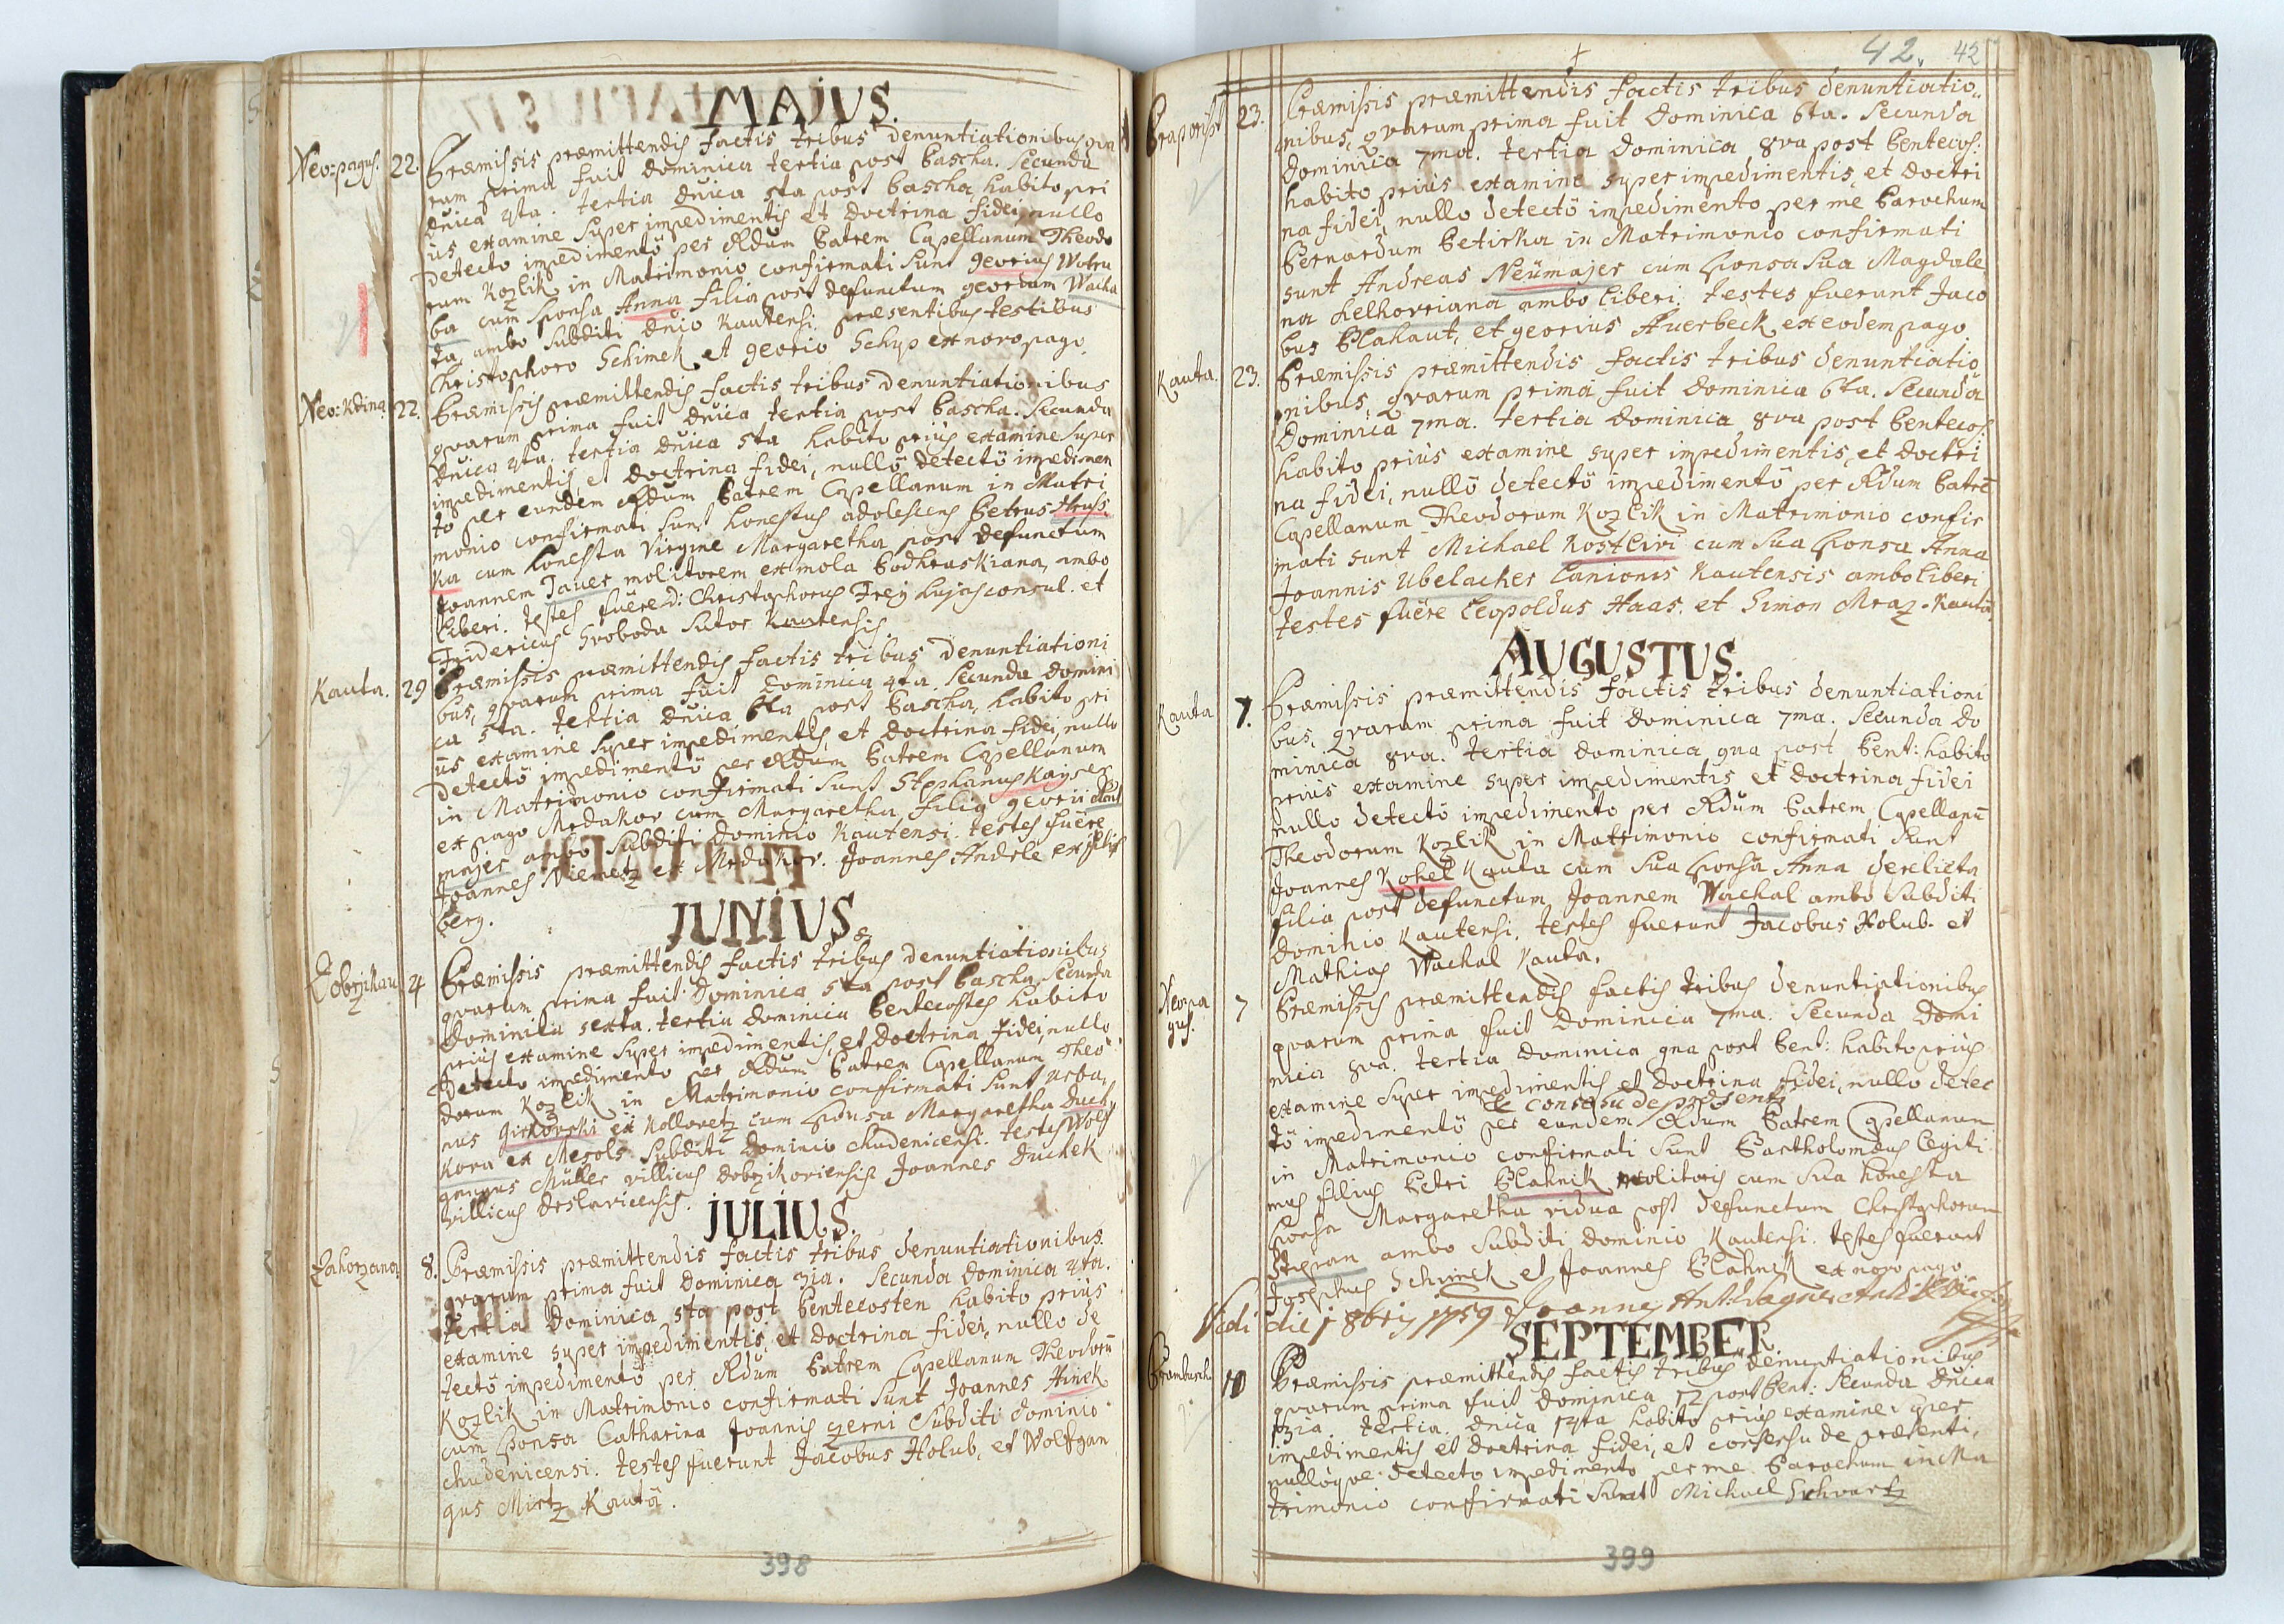 MAJUS.
Neo=pagus. 22. Præmissis præmittendis factis tribus denuntiationibus qva
rum prima fuit dominica tertia post Pascha. Secunda
dnica 4ta. tertia dnica 5ta post Pascha, habito pri
us examine super impedimentis et doctrina fidei, nullo
detecto impedimento per Rdum Patrem Capellanum Theodo
rum Kozlik in Matrimonio confirmati sunt georius Wotru
ba cum sponsa Anna filia post defunctum georium Wacha
ta, ambo subditi dnio Kautensi. præsentibus testibus
Christophoro Schimek et georio Schyp ex novo pago.
Neo: Kdina. 22. Præmissis præmittendis factis tribus denuntiationibus
qvarum prima fuit dnica tertia post Pascha. Secunda
dnica 4ta. tertia dnica 5ta habito prius examine super
impedimentis, et doctrina fidei, nullo detecto impedimen
to per eundem Rdum Patrem Capellanum in Matri
monio confirmati sunt honestus adolescens Petrus Hrusch
ka cum honesta Virgine Margaretha post defunctum
Joannem Tauer molitorem ex mola Podhruskiana, ambo
liberi. testes fuere D: Christophorus Frey hujas consul. et
Fridericus Svoboda sutor Kautensis.
Kauta. 29 Præmissis præmittendis factis tribus denuntiationi
bus, qvarum prima fuit dominica 4ta. Secunda domini
ca 5ta. tertia dnica 6ta post Pascha, habito pri
us examine super impedimentis, et doctrina fidei, nullo
detectö impedimentö per Rdum Patrem Capellanum
in Matrimonio confirmati sunt Stephanus Kayser
ex pago Mrdakow cum Margaretha filia georii
majer ambo subditi dominio Kautensi. testes fuëre
Joannes Niemetz et Mrdakov. Joannes Andrle ex
berg.
JUNIUS
Dobrzikau 4 Præmissis præmittendis factis tribus denuntiationibus
qvarum prima fuit Dominica 5ta post Pascha, Secunda
Dominica sexta. tertia dominica Pentecostes habito
prius examine super impedimentis, et Doctrina fidei, nullo
detecto impedimento per Rdum Patrem Capellanum Theo
dorum Kozlik in Matrimonio confirmati sunt Urba,
nus Girkovski ex Kollovetz cum sponsa Margaretha Duch,
kova ex Mezols. subditi Dominio chudenicensi. testes Wolf
gangus Müller villicus dobrzikoviensis Joannes Duchek
villicus Oeslavicensis.
JULIUS.
Zahorzana 8. Præmissis præmittendis factis tribus denuntiationibus.
qvarum prima fuit dominica 3ia. Secunda dominica 4ta.
tertia Dominica 5ta post Pentecosten habito prius
examine super impedimentis, et doctrina fidei, nullo de
tectö impedimentö per Rdum Patrem Capellanum Theodorū
Kozlik in Matrimonio confirmati sunt Joannes Hinek
cum sponsa Catharina Joannis czerni subditi dominio
chudenicensi. testes fuerunt Jacobus Holub, et Wolfgan
gus Mirtz Kautä.
398
42. 42
23. Præmissis præmittendis factis tribus denuntiatio,
nibus, qvarum prima fuit Dominica 6ta. Secunda
Dominica 7ma. tertia Dominica 8va post Pentecos:
habito prius examine super impedimentis, et doctri
na fidei, nullo detectö impedimento per me Parochum
Bernardum Petirka in Matrimonio confirmati
sunt Andreas Neümajer cum sponsa sua Magdale
na Lelkoviana ambo liberi. testes fuerunt Jaco
bus Blahaut, et georius Auerbeck ex eodem pago
Kauta. 23. Præmissis præmittendis factis tribus denuntiatio,
nibus, qvarum prima fuit Dominica 6ta. Secunda
Dominica 7ma. tertia Dominica 8va post Pentecos:
habito prius examine super impedimentis, et doctri
na fidei, nullö detectö impedimentö per Rdum Patrē
Capellanum Theodorum Kozlik in Matrimonio confir
mati sunt Michael Kostliwi cum sua sponsa Anna
Joannis Ubelacker Lanionis Kautensis ambo liberi
testes fuëre Leopoldus Haas. et Simon Mraz. Kautä
AUGUSTUS.
Kauta 7. Præmissis præmittendis factis tribus denuntiationi
bus, qvarum prima fuit Dominica 7ma. Secunda Do
minica 8va. tertia Dominica 9na post Pent: habito
prius examine super impedimentis et doctrina fidei
nullo detectö impedimento per Rdum Patrem Capellanū
Theodorum Kozlik in Matrimonio confirmati sunt
Joannes Kohel Kauta cum sua sponsa Anna derelicta
filia post defunctum Joannem Wachal ambo subditi
dominio Kautensi. testes fuerunt Jacobus Holub. et
Mathias Wachal Kauta.
Neo=pa
gus. 7 Præmissis præmittendis factis tribus denuntiationibus
qvarum prima fuit Dominica 7ma. Secunda Domi
nica 8va. tertia Dominica 9na post Pent: habito prius
examine super impedimentis et doctrina fidei, nullo detec
et consensu de præsenti
tö impedimentö per eundem Rdum Patrem Capellanum
in Matrimonio confirmati sunt Bartholomæus Legiti
mus filius Petri Blahnik molitoris cum sua honesta
sponsa Margaretha vidua post defunctum Christophorum
Stepan ambo subditi dominio Kautensi. testes fuerunt
Josephus Schimek et Joannes Blahnik ex novo pago
Vidi die 1 8bris 1759 Joannes Ant. Wagner
SEPTEMBER
10 Præmissis præmittendis factis tribus denuntiationibus
qvarum prima fuit dominica 12 post Pent: Secunda Dnica
13ia. tertia. dnica 14ta habito prius examine super
impedimentis et doctrina fidei, et consensu de præsenti,
nulloqve detecto impedimento per me Parochum in Ma
trimonio confirmati sunt Michael Schvartz
399